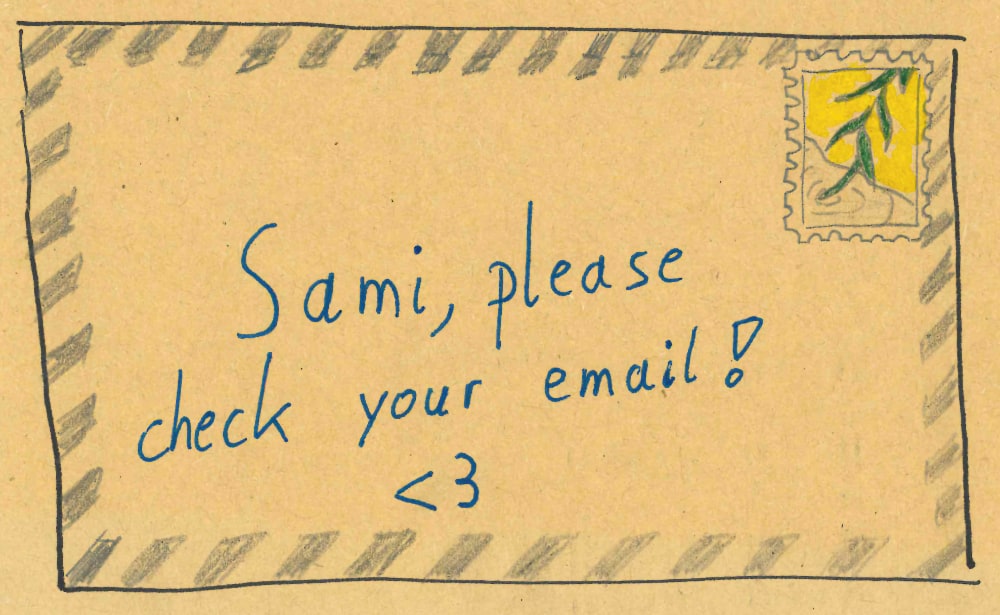 Sami, please
check your email!
<3